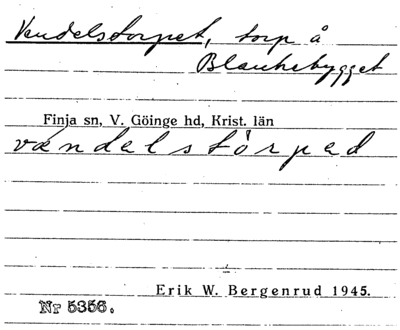 Vendelstorpet, torp å
Blankebygget
Finja sn, V. Göinge hd, Krist. län
vændelstörpad
Erik W. Bergenrud 1945.
Nr 5356.